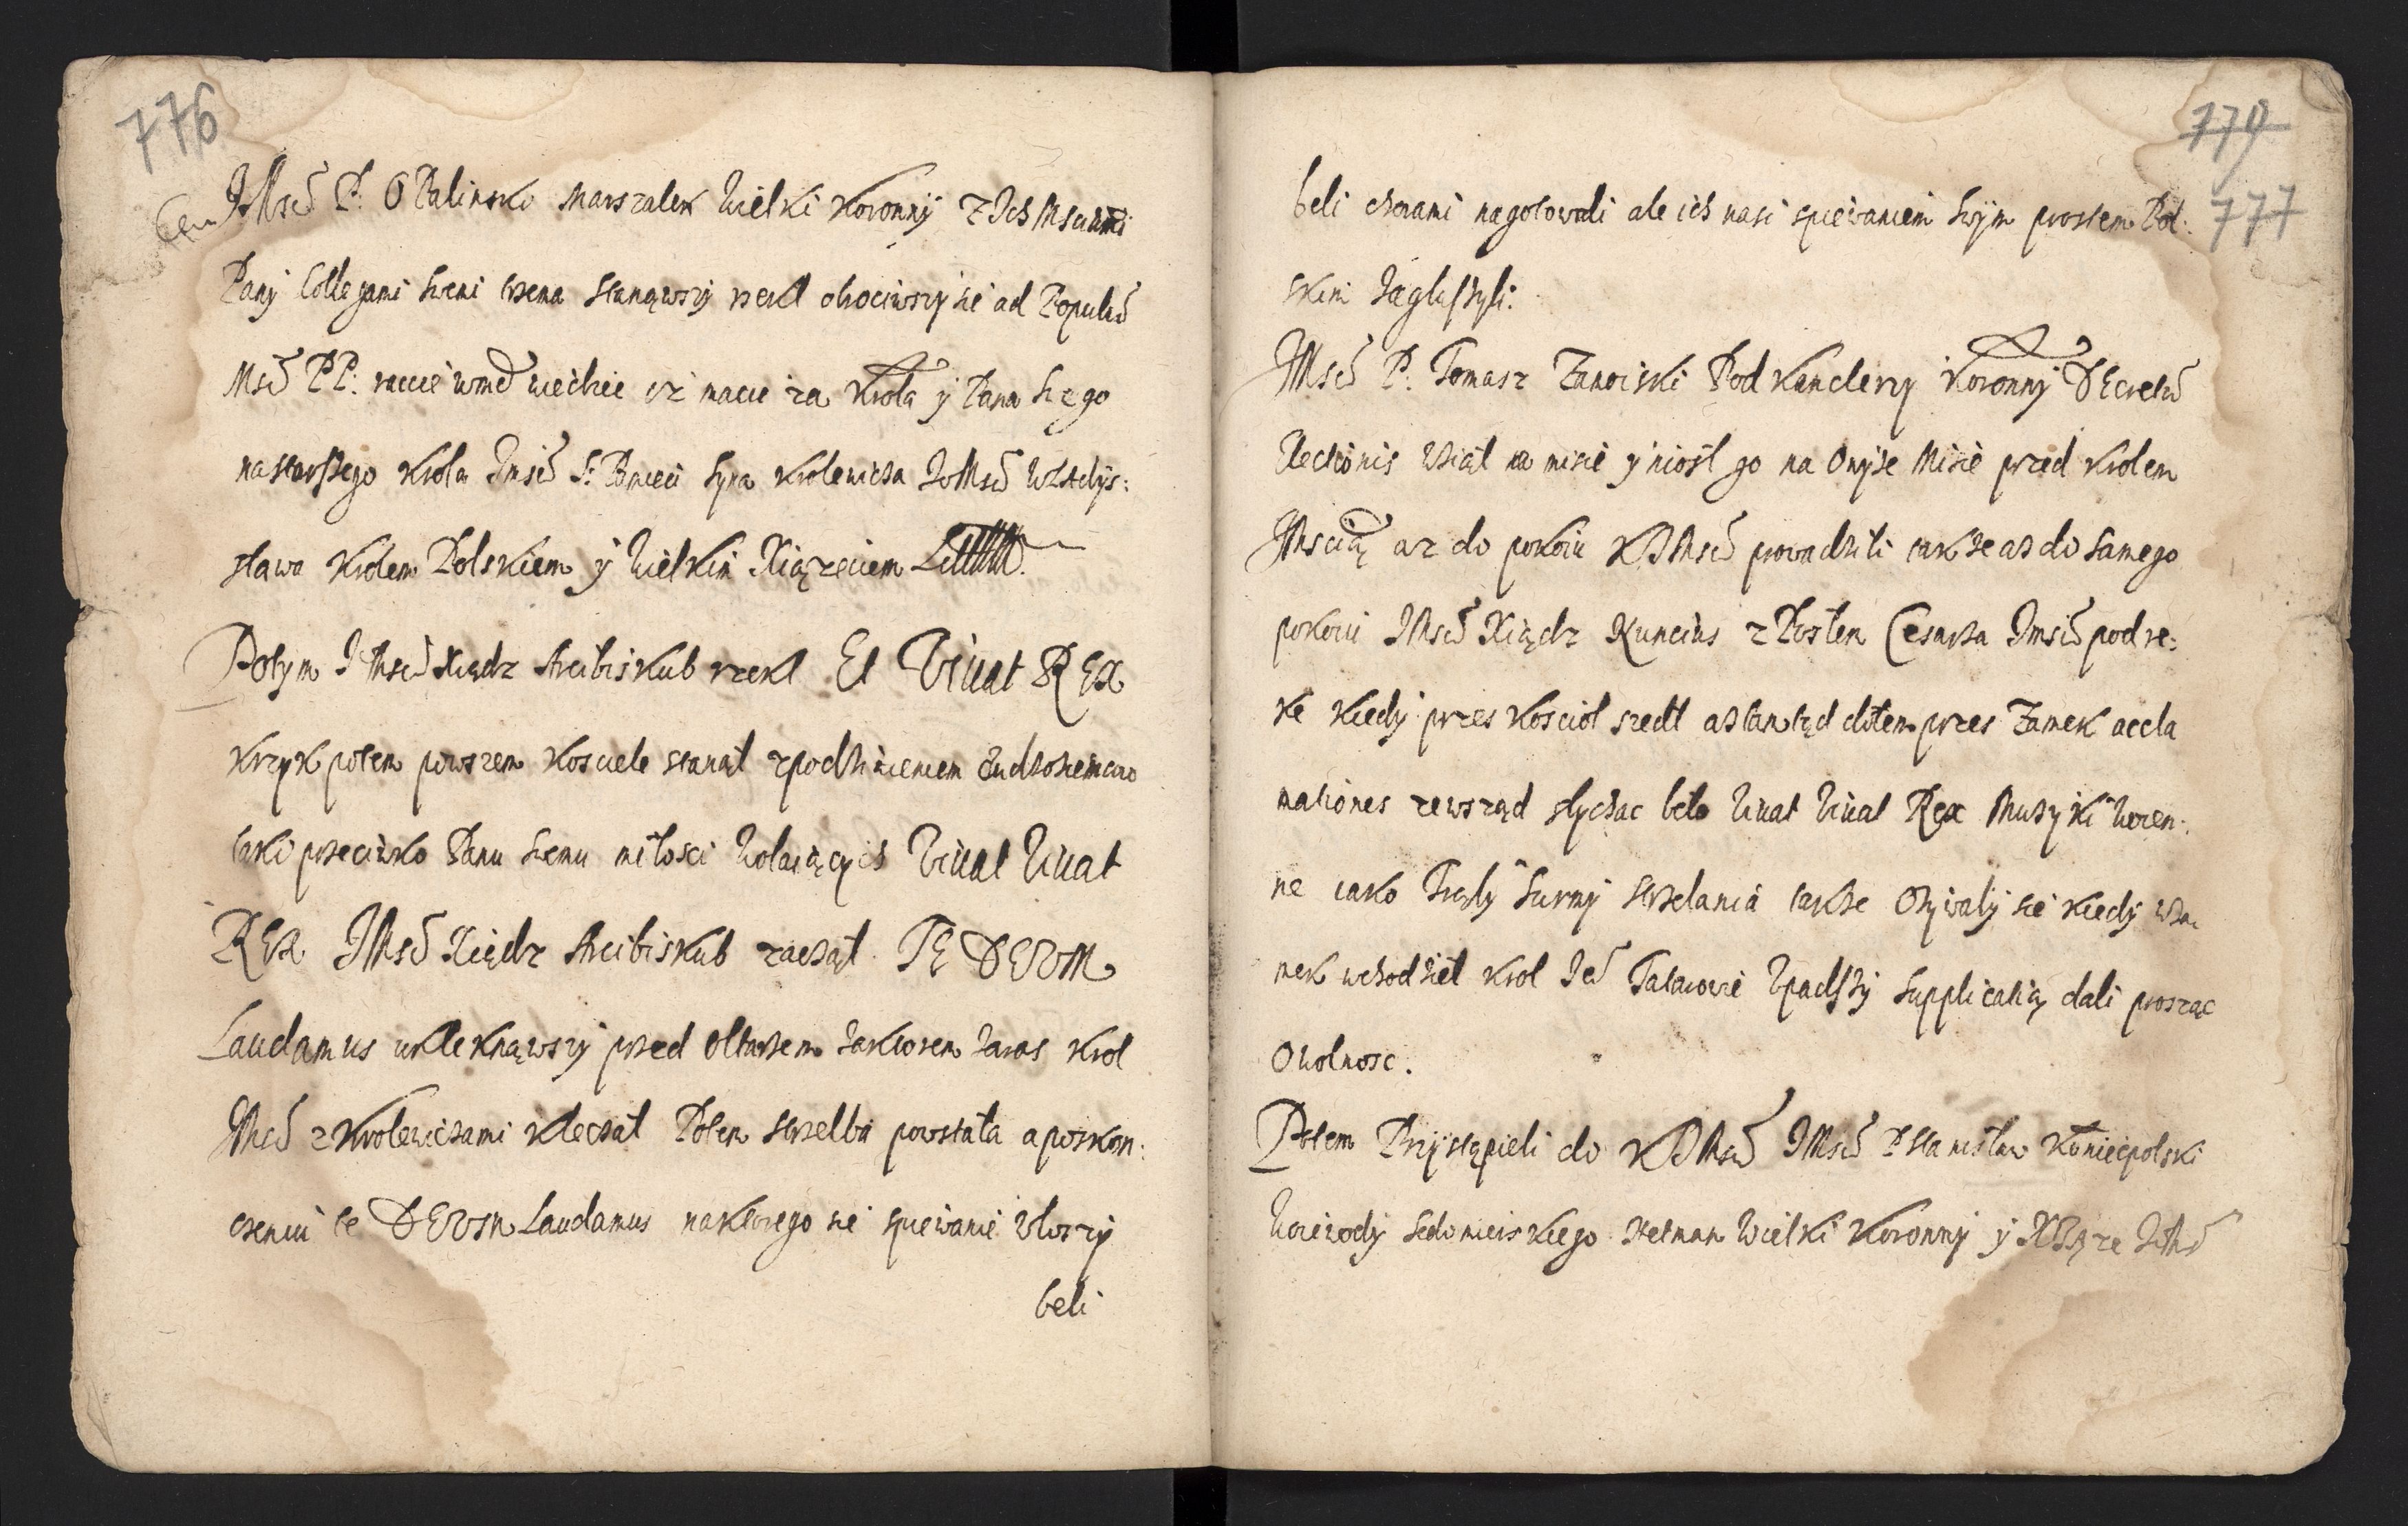 776
JMsć P. OPalinski Marszalek Wielki Koronny z Ich Msciami
Pany Collegami swemi trzema stanąwszy rzekl obrociwszy sie ad Populũ
Msć PP. raccie wmć wiedziec iz macie za Krola y Pana swego
nastarszego Krola Jmsci S. Pamieci syna Krolewicza JoMsć Wladys:
slawa Krolem Polskiem y Wielkim Xiązęciem Litt
Potym JMsć Xiądz Arcibiskub rzekl Et Viuat REX
krzyk potem powszem Kosciele stanął z podziwieniem Cudzoziemcow
taki przeciwko Panu swemu miłosci wolaiących Viuat Viuat
REX JMsć Xiądz Arcibiskub zaczął TE DEVM
Laudamus uklęknąwszy przed Ołtarzem zaktorem zaras Krol
JMsć z Krolewiczami klęczał Potem strzelba powstała aposkon:
czeniu te DEVM Laudamus naktorego sie spiewanie Włoszy
beli
779
777
beli chorami nagotowali ale ich nasi spiewaniem swym prostem Pol:
skim zagłuszyli.
JMsć P. Tomasz Zamoiski Pod Kanclerzy Koronny DEcretũ
Electionis wziął na misie y niosl go na Onyze Misie przed Krolem
JMscią az do pokoiu KJMsć prowadzili takze az do samego
pokoiu JMsć Xiądz Nuncius z Posłem Cesarza Jmsć pod rę:
kę kiedy przes kosciol szedl aztamtąd dołem przes Zamek accla
mationes zewsząd slychac beło Viuat Viuat Rex Muzyki woien:
ne iako Trąby Surmy strzelania takze Ozywaly sie kiedy wza
mek wchodził Krol Jeo Tatarowie Upadszy supplicatią dali prosząc
Owolnosc.
Potem Przystąpieli do KJMsć JMsć P Stanisław Koniecpolski
Woiewody Sędomierskiego Hetman Wielki Koronny y XIąze JoMć